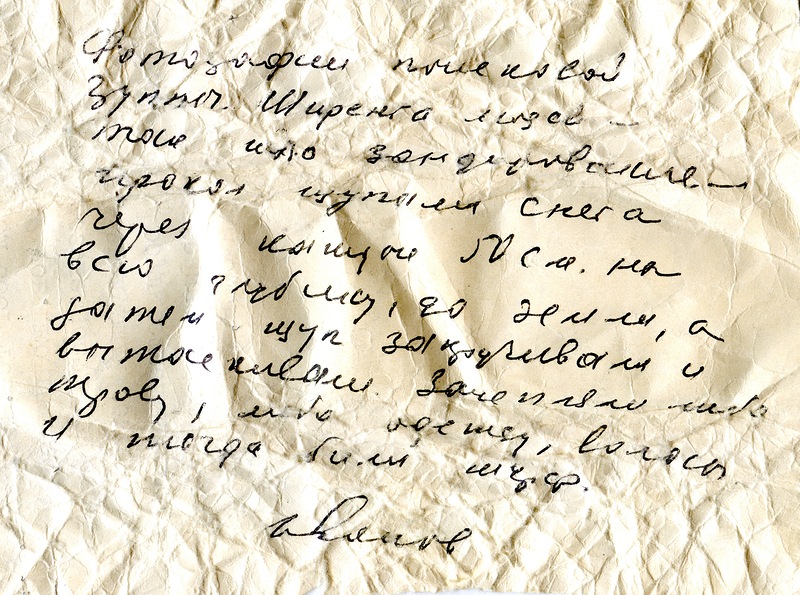 Фотографии поисковой
группы. Ширенга
так что зондирование —
прокол щупами снега
через каждые 50 см. на
всю глубину, до земли, а
затем щуп закручивали и
вытаскивали. Зацепляло либо
траву, либо одежду, волосы
и тогда били шурф.